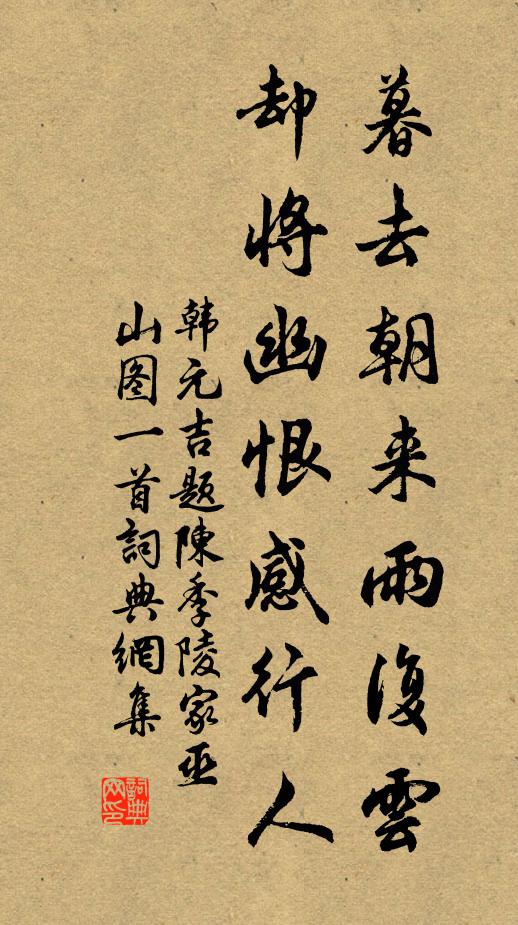 暮去朝来雨復雲
却将幽恨感行人
韩元吉题陳季陵家巫
山图一首詞典網集
詞典网印